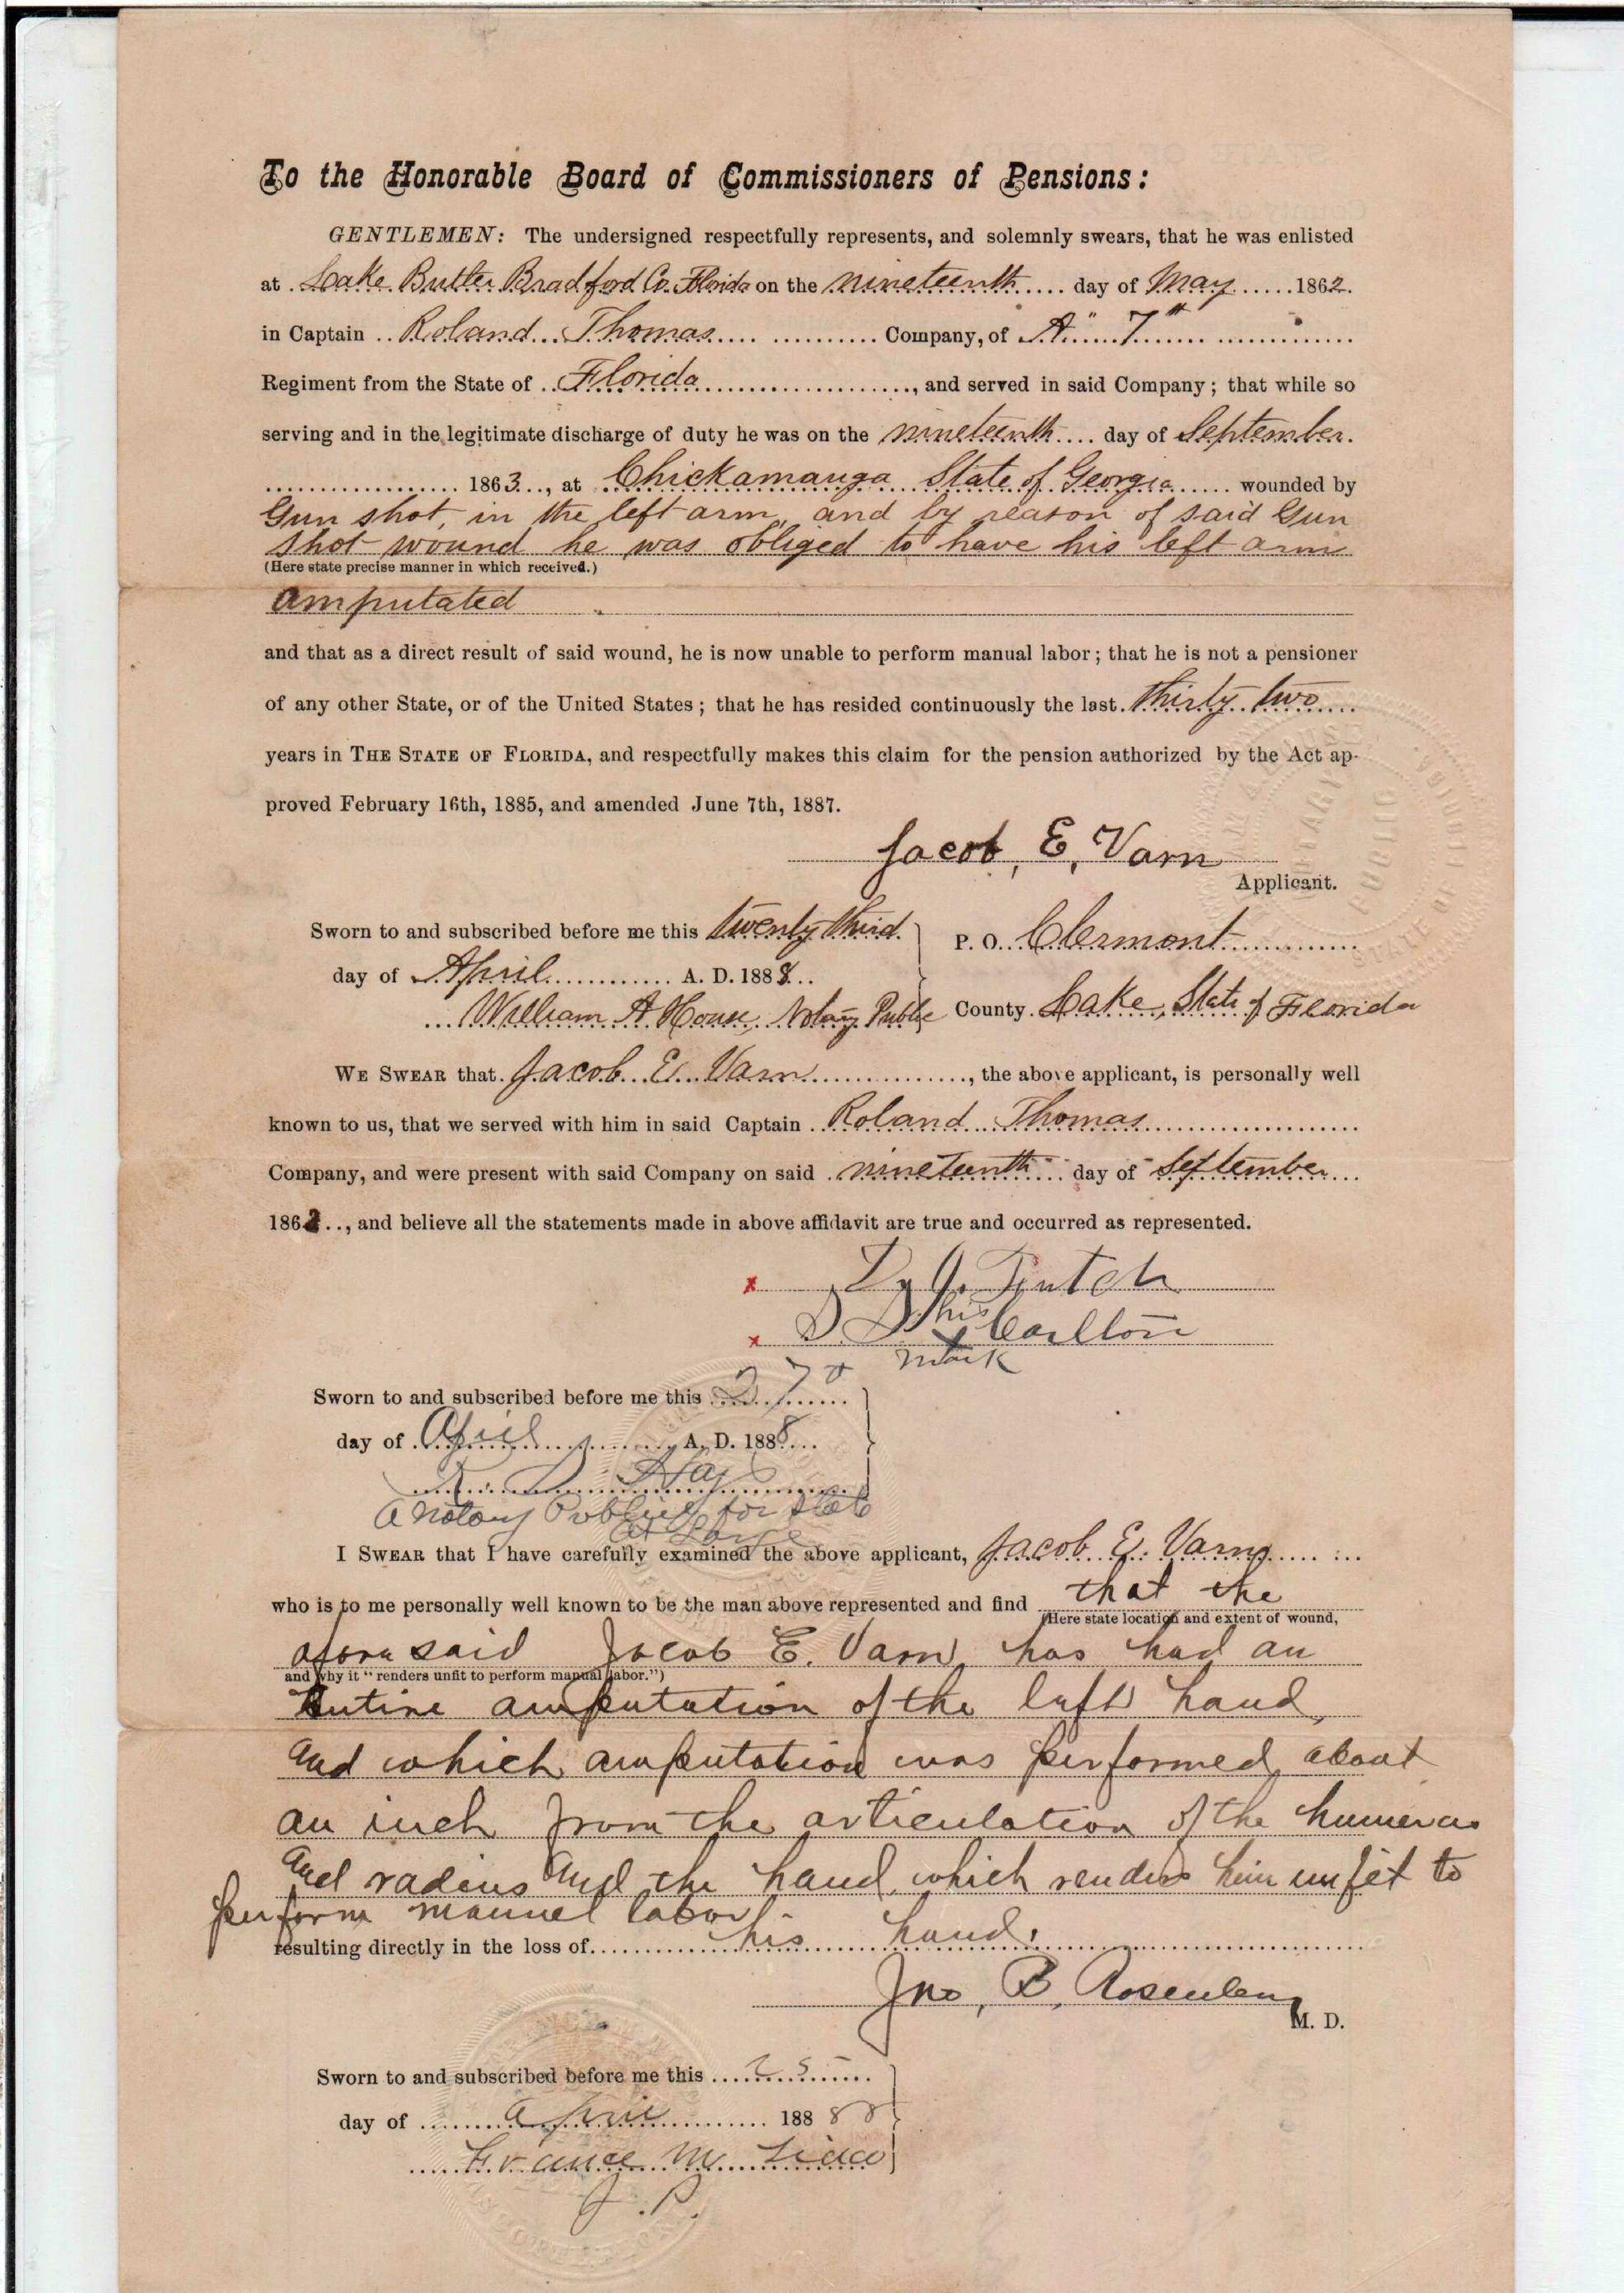 To the Honorable Board of Commissioners of Pensions:
GENTLEMEN: The undersigned respectfully represents, and solemnly swears, that he was enlisted
at Lake Butler Bradford Co. Florida on the nineteenth day of May 1862.
in Captain Roland Thomas Company, of "A" 7"
Regiment from the State of Florida, and served in said Company; that while so
serving and in the legitimate discharge of duty he was on the nineteenth day of September.
1863, at Chickamauga State of Georgia wounded by
Gun shot, in the left arm, and by reason of said Gun
shot wound he was obliged to have his left arm
(Here state precise manner in which received.)
amputated
and that as a direct result of said wound, he is now unable to perform manual labor; that he is not a pensioner
of any other State, or of the United States; that he has resided continuously the last thirty two
years in THE STATE OF FLORIDA, and respectfully makes this claim for the pension authorized by the Act ap-
proved February 16th, 1885, and amended June 7th, 1887.
Jacob, E, Varn
Applicant.
Sworn to and subscribed before me this twenty third
day of April A. D. 1888
William A House, Notary Public
P. O. Clermont
County Lake, State of Florida
WE SWEAR that Jacob E. Varn, the above applicant, is personally well
known to us, that we served with him in said Captain Roland Thomas
Company, and were present with said Company on said nineteenth day of September
186, and believe all the statements made in above affidavit are true and occurred as represented.
x
x Carlton
his
x
mark
Sworn to and subscribed before me this 27
day of April A. D. 1888
A Notary Public for State
At Large
I SWEAR that I have carefully examined the above applicant, Jacob E. Varn
who is to me personally well known to be the man above represented and find that the
(Here state location and extent of wound,
afore said Jacob E. Varn, has had an
and why it "renders unfit to perform manual labor.")
Entire amputation of the left hand,
and which amputation was performed about
an inch from the articulation of the humerus
and radius and the hand, which renders him unfit to
perform manuel labor
resulting directly in the loss of his hand.
Jno, B, Rosenberg
M. D.
Sworn to and subscribed before me this 25
day of April 188 88
J. P.
NOTARY PUBLIC
STATE OF FLORIDA